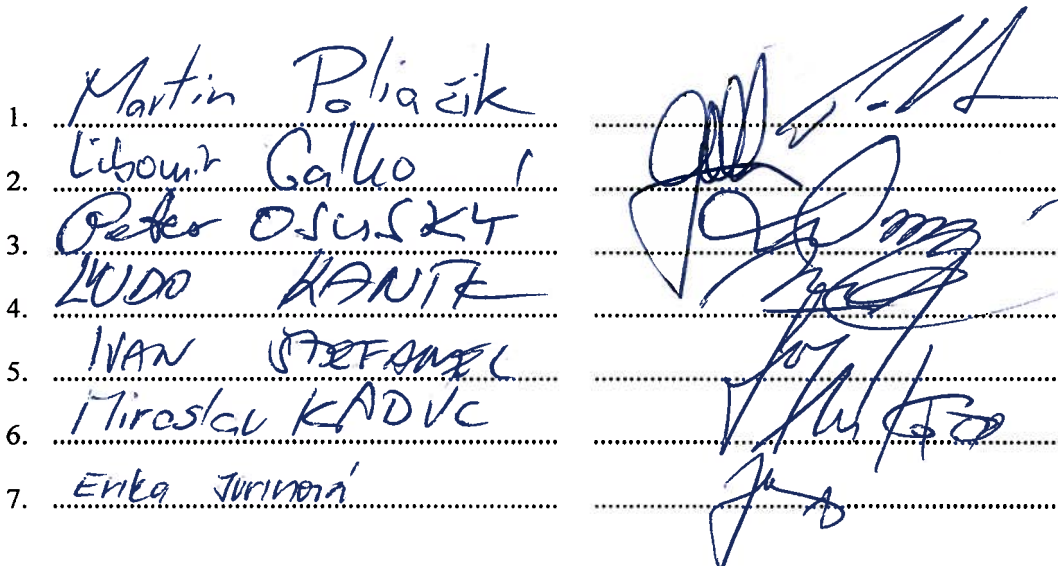 1. Martin Poliačik
2. Ľubomír Galko
3. Peter OSUSKÝ
4. ĽUDO KANÍK
5. IVAN ŠTEFANEC
6. Miroslav KADÚC
7. Erika Jurinová